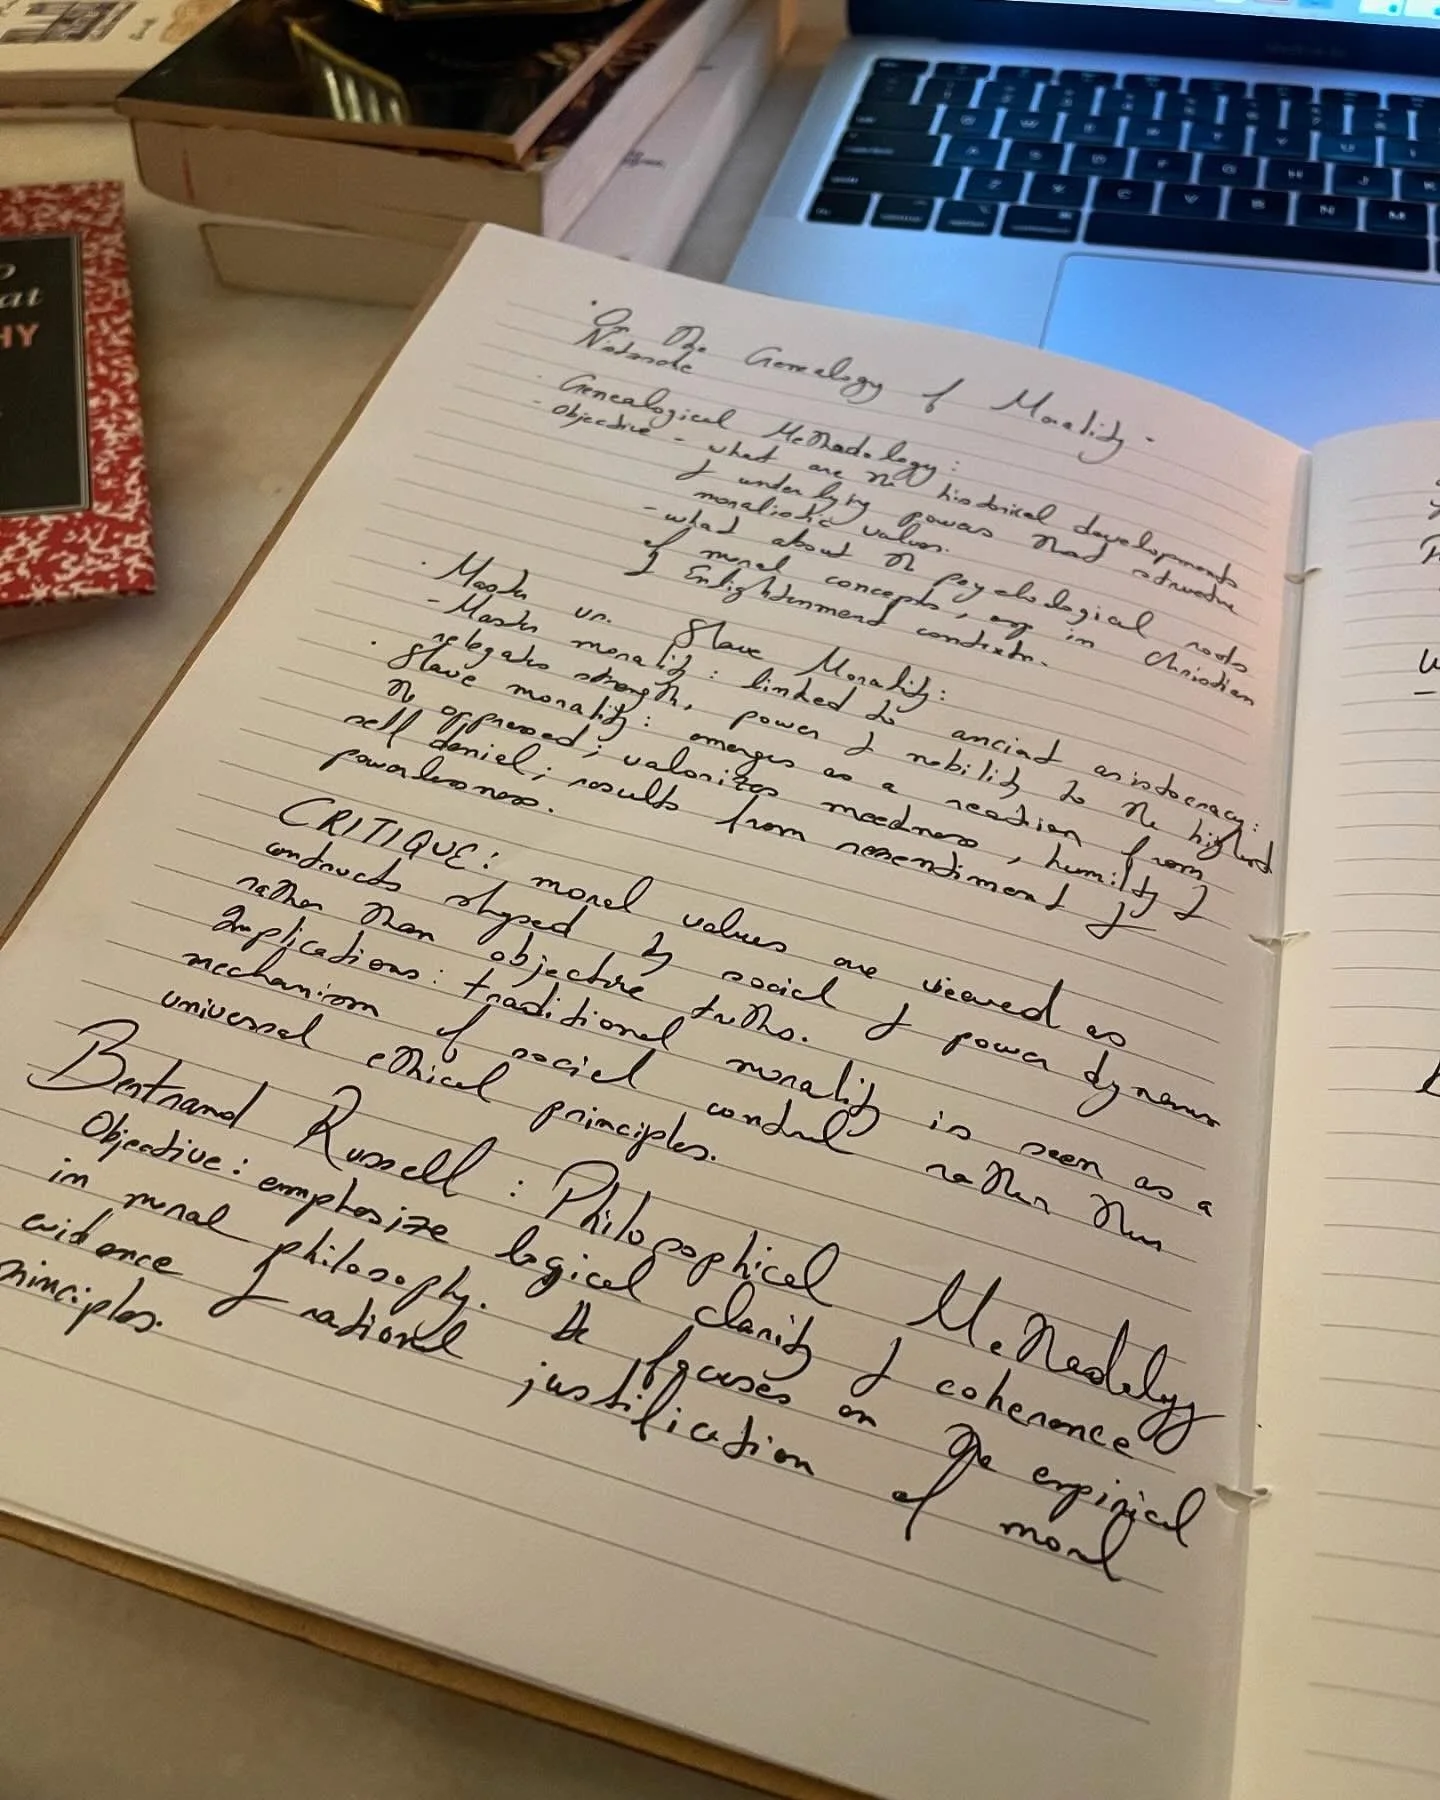 · On the Genealogy of Morality -
Nietzsche
· Genealogical Methodology:
- Objective - what are the historical developments
& underlying powers that structure
moralistic values.
- what about the psychological roots
of moral concepts, esp in Christian
& Enlightenment contexts.
· Master vs. Slave Morality:
- Master morality: linked to ancient aristocracy:
relegates strength, power & nobility to the highest
· Slave morality: emerges as a reaction from
the oppressed; valorizes meekness, humility &
self denial; results from resentiment &
powerlessness.
CRITIQUE: moral values are viewed as
constructs shaped by social & power dynamics
rather than objective truths.
Implications: traditional morality is seen as a
mechanism of social control rather than
universal ethical principles.
Bertrand Russell: Philosophical Methodology
Objective: emphasize logical clarity & coherence
in moral philosophy. He focuses on the empirical
evidence & rational justification of moral
principles.
at
HY